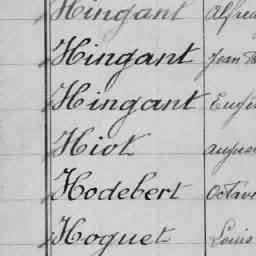 Hingant Alfred
Hingant Jean B
Hingant Eugè
Hiot augus
Hodebert Octave
Hoguet Louis